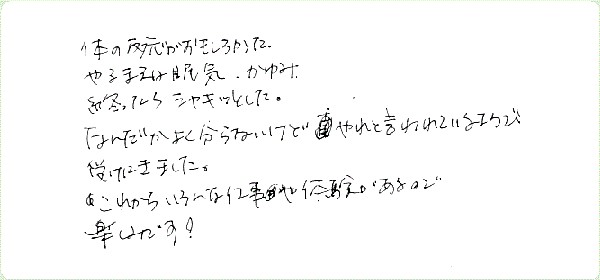 体の反応がおもしろかった。
やるまえは眠気、かゆみ
を終ったらシャキッとした。
なんだかよく分らないけど やれと言われているようで、
受けにきました。
これからいろいろな仕事や体験があるので
楽しみです!